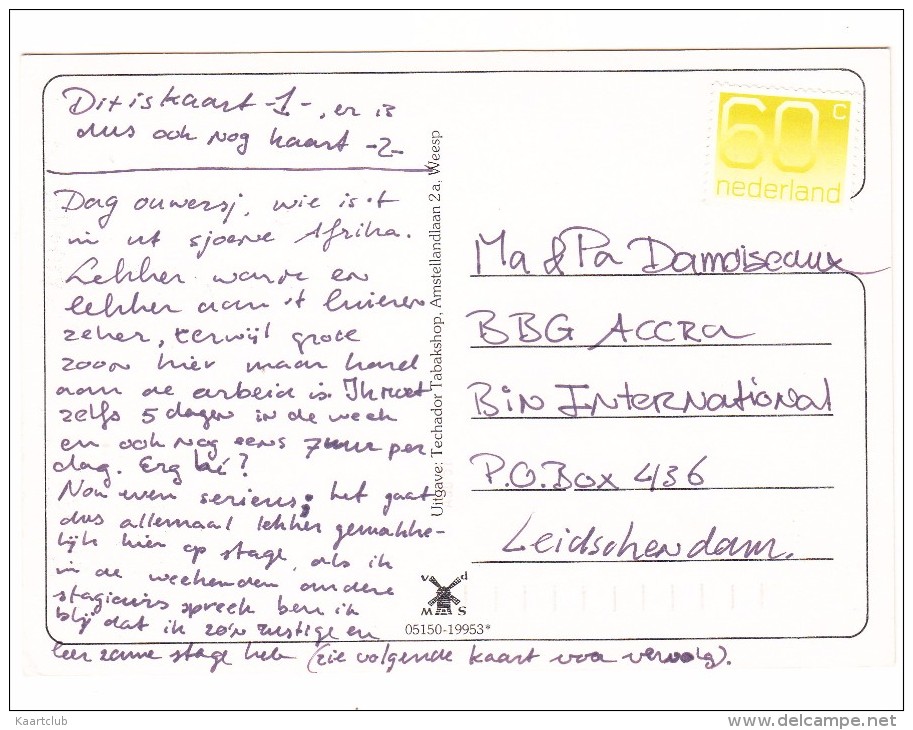 Dit is kaart -1-, er is
dus ook nog kaart -2-
Dag ouwersj, wie is 't
in ut sjoene Afrika.
Lekker warm en
lekker aan 't luieren
zeker, terwijl grote
zoon hier maar hard
aan de arbeid is. Ik moet
zelfs 5 dagen in de week
en ook nog eens 7 uur per
dag. Erg hè?
Nou even serieus; het gaat
dus allemaal lekker gemakke-
lijk hier op stage, als ik
in de weekenden andere
stagieurs spreek ben ik
blij dat ik zo'n rustige en
leerzame stage heb (zie volgende kaart voor vervolg).
Uitgave: Techador Tabakshop, Amstellandlaan 2a, Weesp
60 c
nederland
Ma & Pa Damoiseaux
BBG ACCRA
Bin International
P.O. Box 436
Leidschendam.
v d
MAS
05150-19953*
Kaartclub
www.delcampe.net